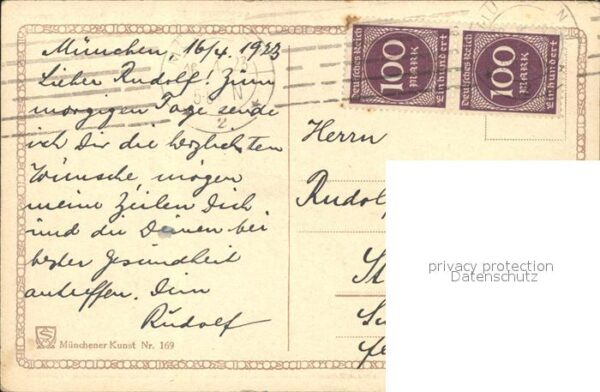 München, 16/4. 1923
Lieber Rudolf! Zum
morgigen Tage sende
ich Dir die herzlichsten
Wünsche, mögen
meine Zeilen Dich
und die Deinen bei
bester Gesundheit
antreffen. Dein
Rudolf
Münchener Kunst Nr. 169
Deutsches Reich
100
MARK
Einhundert
Deutsches Reich
100
MARK
Einhundert
Herrn
Rudol
privacy protection
Datenschutz